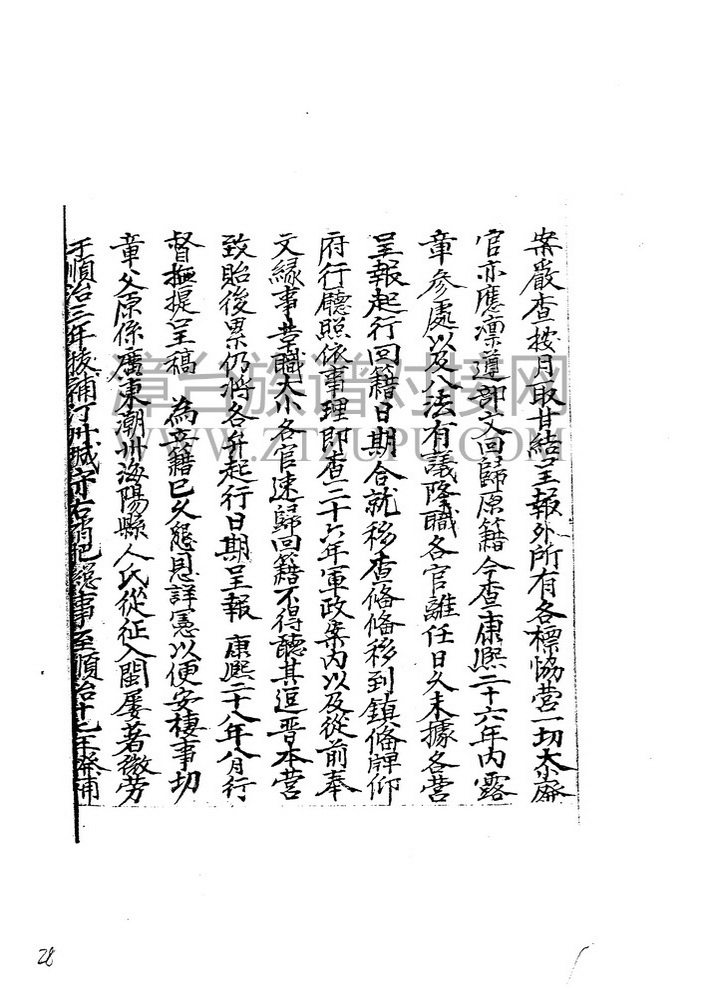 案嚴查按月取甘結呈報外所有各標協營一切大小廢
官亦應凛遵部文回歸原籍今查康熙二十六年内露
章參處以及八法有議降職各官離任日久未據各營
呈報起行回籍日期合就移查俻俻移到鎮俻牌仰
府行廳照依事理即查二十六年軍政案内以及從前奉
文緣事革職大小各官速歸回籍不得聽其逗晋本營
致貽後累仍將各弁起行日期呈報 康熙二十八年八月行
督撫提呈稿 為弃籍已久懇恩詳憲以便安棲事切
章父原係廣東潮州海陽縣人氏從征入閩屢著微勞
于順治三年拔補汀州城守右哨把總事至順治十七年
漳台族谱对接网
WWW.ZTZUPU.COM
28